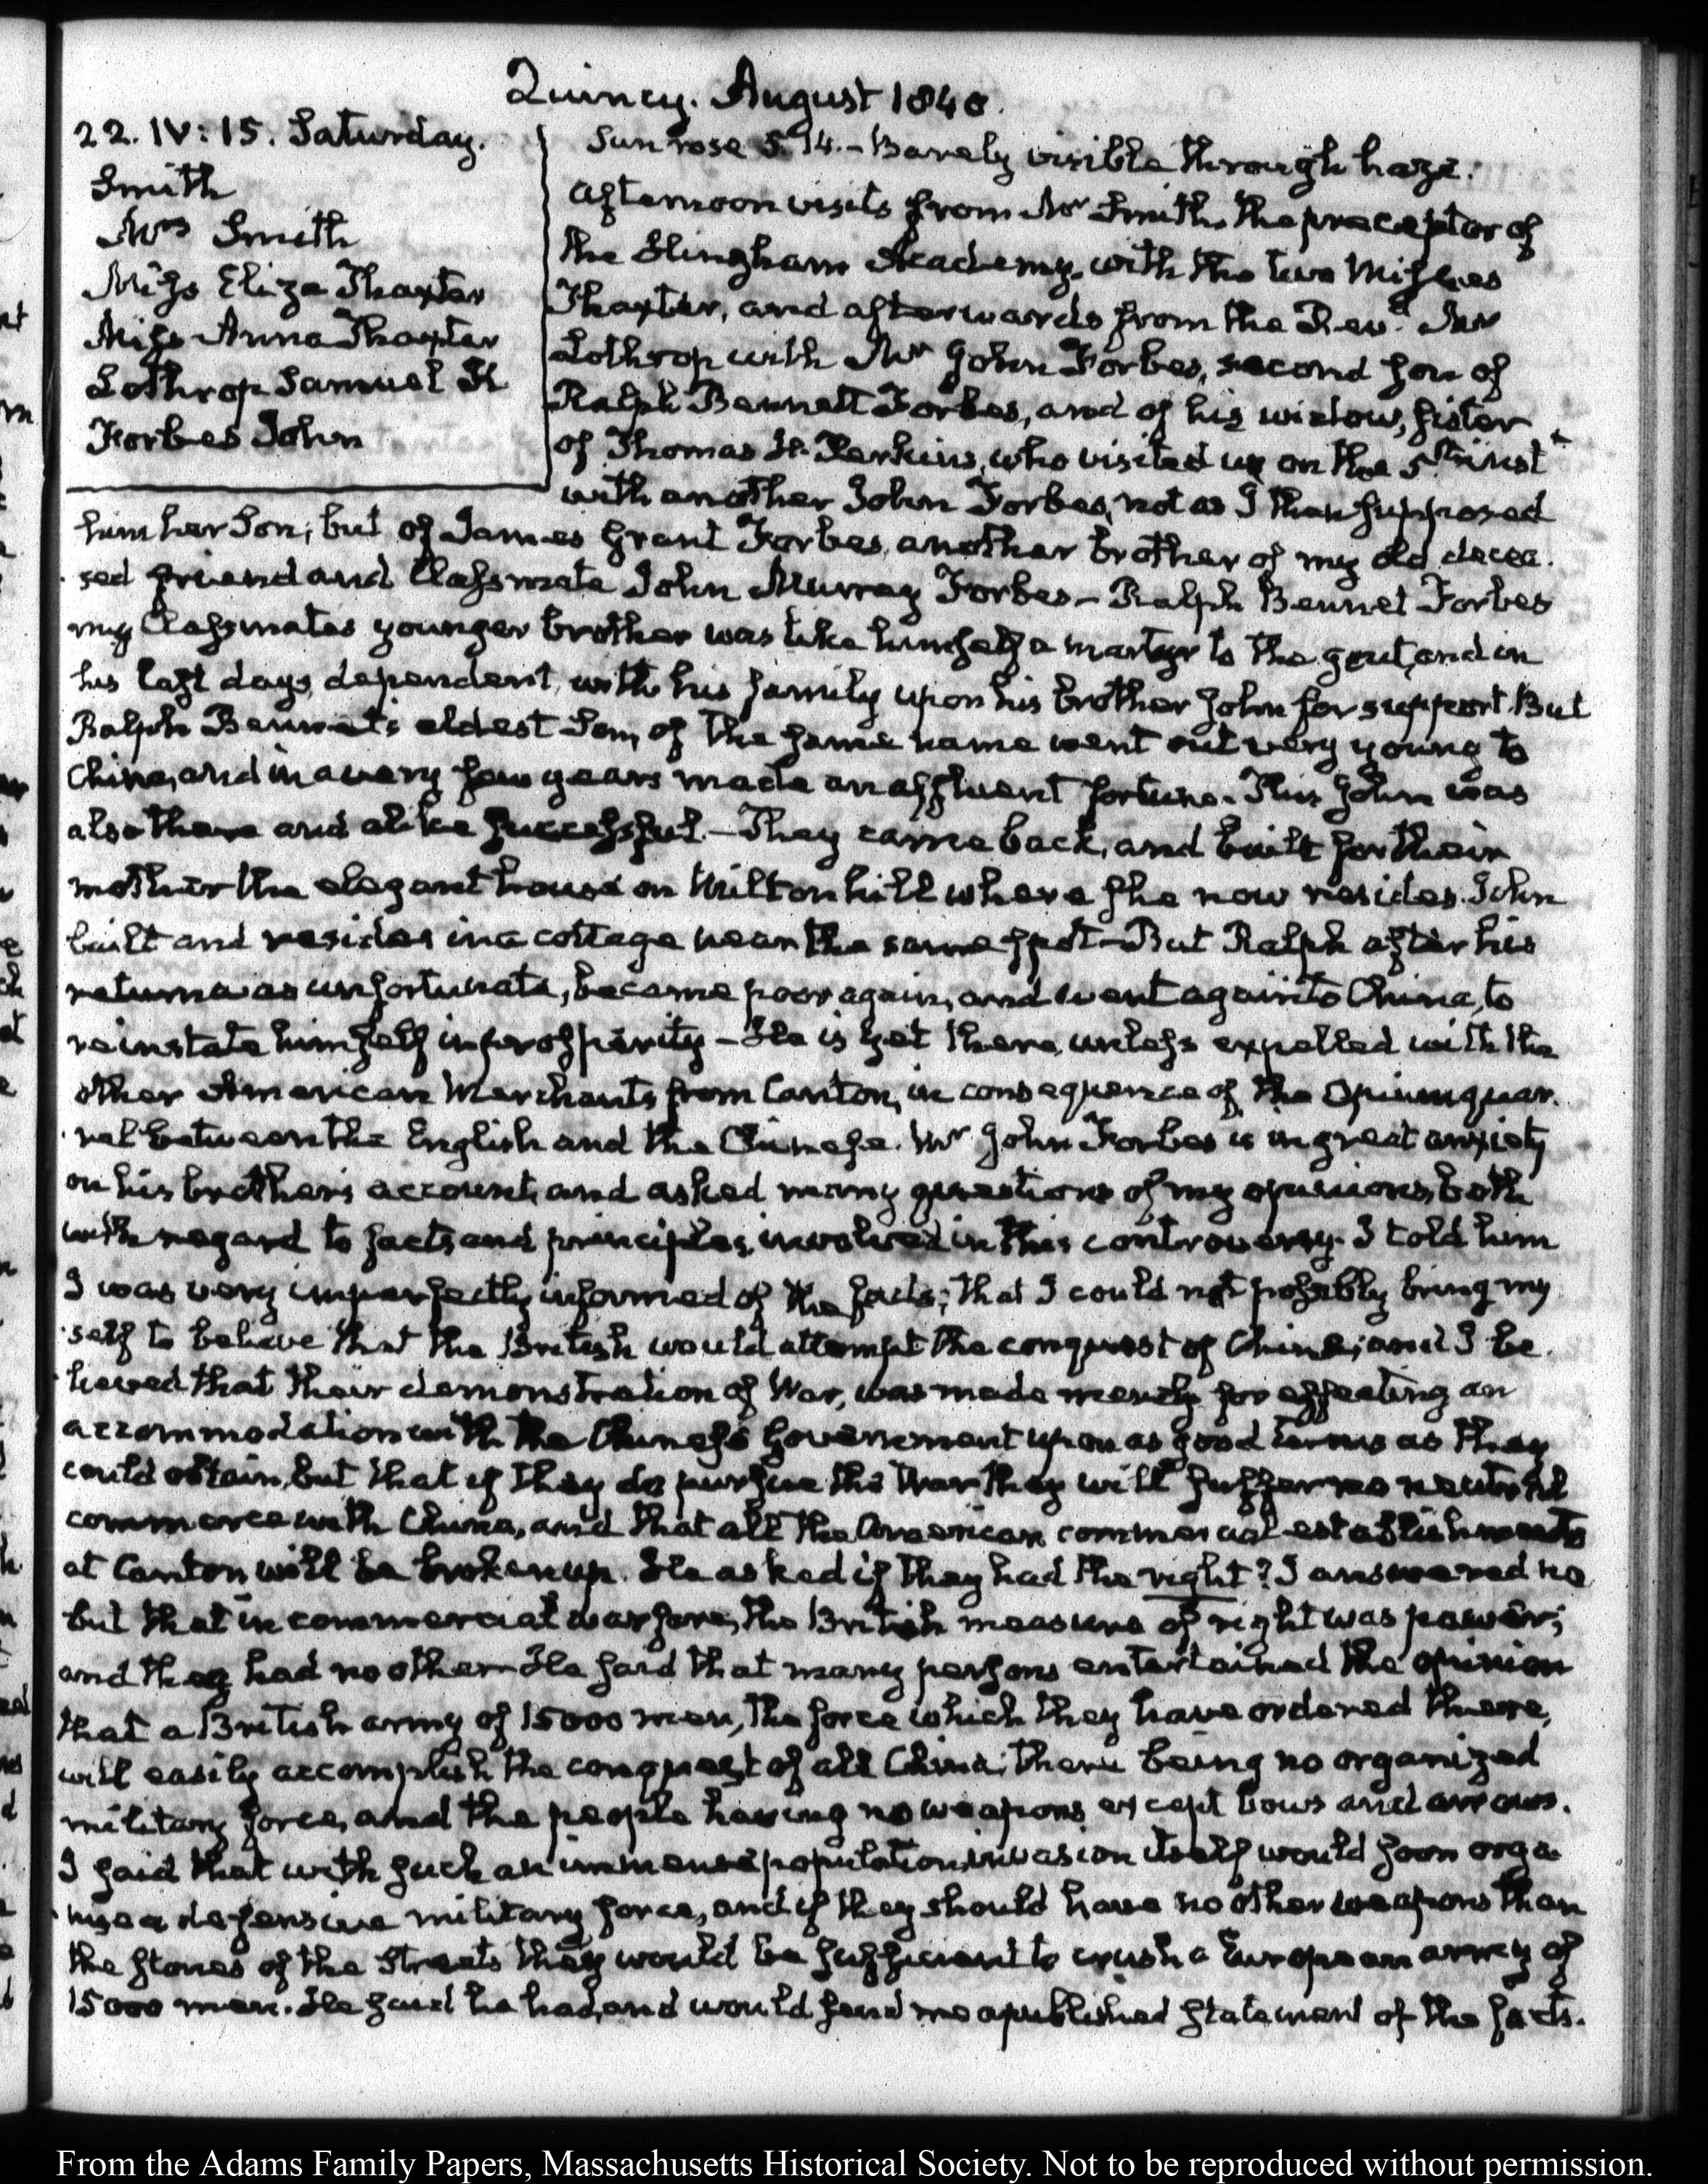 Quincy. August 1840.
22. IV: 15. Saturday.
Smith
Mrs Smith
Miss Eliza Thaxter
Miss Anna Thaxter
Lothrop Samuel K
Forbes John
Sun rose 5. 14. – Barely visible through haze.
Afternoon visits from Mr Smith, the preceptor of
the Hingham Academy, with the two Misses
Thaxter, and afterwards from the Revd. Mr
Lothrop with Mr John Forbes, second son of
Ralph Bennett Forbes, and of his widow, sister
of Thomas H. Perkins, who visited us on the 5th inst
with another John Forbes, not as I then supposed
him her Son; but of James Grant Forbes, another brother of my old decea-
sed friend and Classmate John Murray Forbes – Ralph Bennet Forbes
my Classmates younger brother was like himself a martyr to the gout, and in
his last days, dependent, with his family upon his brother John for support. But
Ralph Bennet's eldest Son, of the same name went out very young to
China, and in a very few years made an affluent fortune. This John was
also there and alike successful. – They came back, and built for their
mother the elegant house on Milton hill where she now resides. John
built and resides in a cottage near the same spot – But Ralph after his
return was unfortunate, became poor again, and went again to China, to
reinstate himself in prosperity – He is yet there, unless expelled with the
other American Merchants from Canton, in consequence of the Opium quar-
rel between the English and the Chinese. Mr John Forbes is in great anxiety
on his brother's account, and asked many questions of my opinions, both
with regard to facts and principles, involved in this controversy. I told him
I was very imperfectly informed of the facts; that I could not possibly bring my-
self to believe that the British would attempt the conquest of China; and I be-
lieved that their demonstration of War, was made merely for effecting an
accommodation with the Chinese Government upon as good terms as they
could obtain, but that if they do pursue the War they will suffer no neutral
commerce with China, and that all the American commercial establishments
at Canton will be broken up. He asked if they had the right? I answered no
but that in commercial warfare, the British measure of right was power;
and they had no other – He said that many persons entertained the opinion
that a British army of 15000 men, the force which they have ordered there,
will easily accomplish the conquest of all China; there being no organized
military force, and the people having no weapons except bows and arrows.
I said that with such an immense population, invasion itself would soon orga-
nize a defensive military force, and if they should have no other weapons than
the stones of the Streets they would be sufficient to crush a European army of
15000 men. He said he had, and would send me a published statement of the facts.
From the Adams Family Papers, Massachusetts Historical Society. Not to be reproduced without permission.